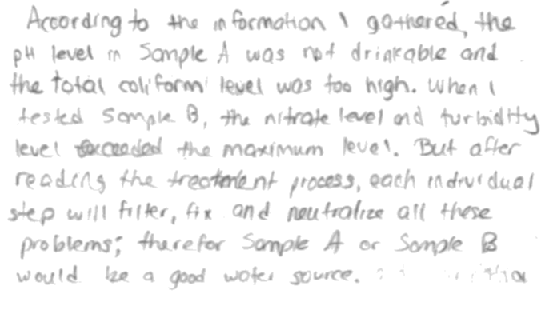 According to the information I gathered, the
pH level in Sample A was not drinkable and
the total coliform level was too high. When I
tested Sample B, the nitrate level and turbidity
level exceeded the maximum level. But after
reading the treatment process, each individual
step will filter, fix and neutralize all these
problems; therefor Sample A or Sample B
would be a good water source.